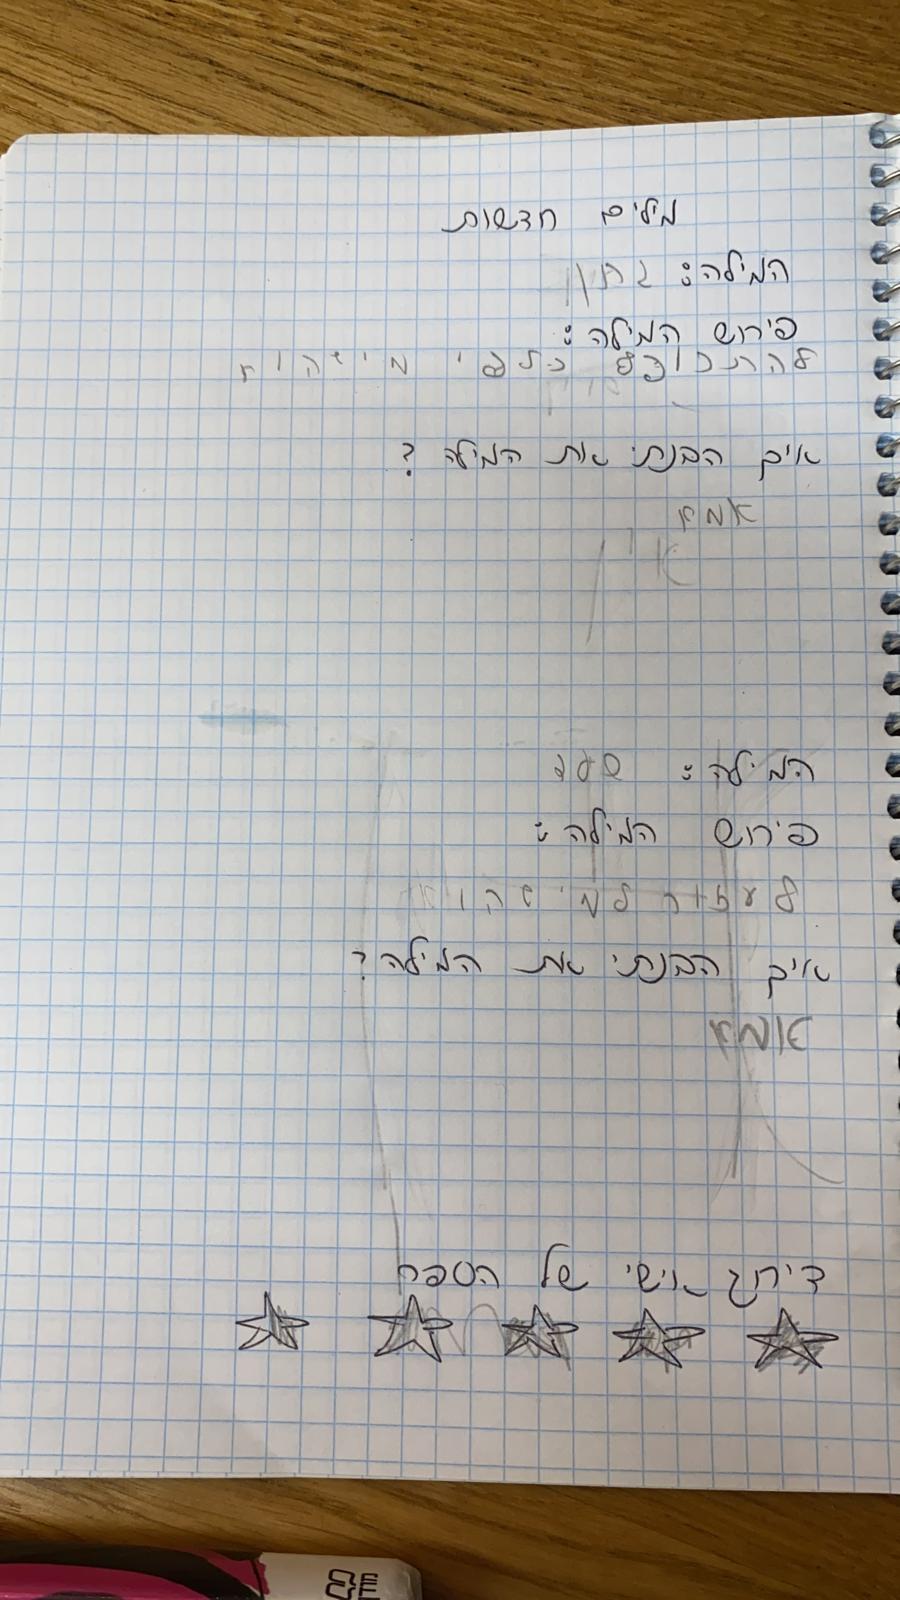 מילים חדשות
המילה: גחן
פירוש המילה:
להתכופף כלפי מישהו
איך הבנתי את המילה?
אמא
המילה: סעד
פירוש המילה:
לעזור למישהו
איך הבנתי את המילה?
אמא
דירוג אישי של הספר